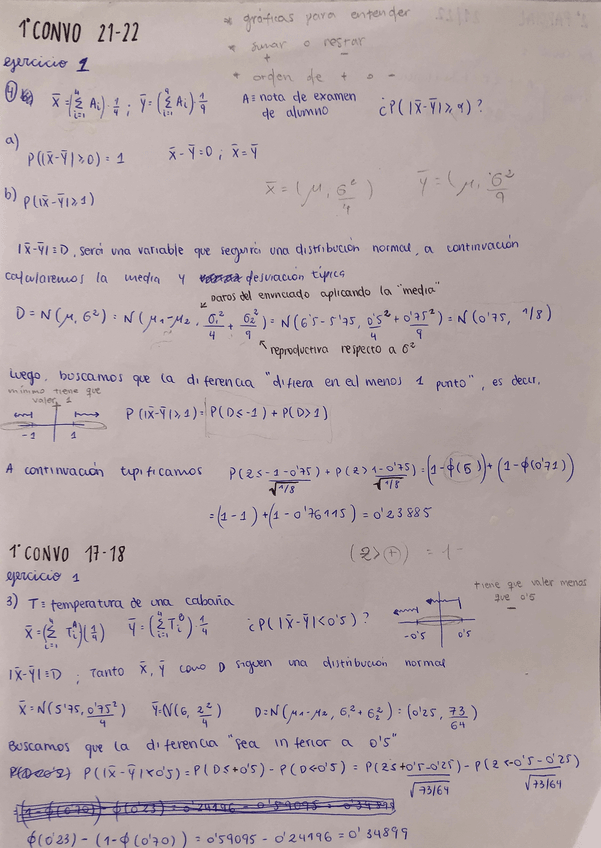 1ª CONVO 21-22
* gráficas para entender
* sumar o restar
+ -
* orden de + o -
ejercicio 1
4) X̄ = (∑ᵢ₌₁⁴ Aᵢ)·1/4 ; Ȳ = (∑ᵢ₌₁⁹ Aᵢ) 1/9 A ≡ nota de examen de alumno ¿P(|X̄-Ȳ| ≥ 1)?
a)
P(|X̄-Ȳ| ≥ 0) = 1 X̄-Ȳ=0 ; X̄=Ȳ
X̄ = (μ, σ²/4) Ȳ = (μ, σ²/9)
b) P(|X̄-Ȳ| ≥ 1)
|X̄-Ȳ| ≡ D, será una variable que seguirá una distribución normal, a continuación
calcularemos la media y desviación típica
↙ Datos del enunciado aplicando la "media"
D = N(μ, σ²) = N(μ₁-μ₂, σ₁²/4 + σ₂²/9) = N(6'5-5'75, 0'5²/4 + 0'75²/9) = N(0'75, 1/8)
↖ reproductiva respecto a σ²
Luego, buscamos que la diferencia "difiera en al menos 1 punto", es decir,
mínimo tiene que
valer 1
-1 1
P(|X̄-Ȳ| ≥ 1) = P(D ≤ -1) + P(D > 1)
A continuación tipificamos P(Z ≤ (-1-0'75)/√1/8) + P(Z > (1-0'75)/√1/8) = (1-ϕ(5)) + (1-ϕ(0'71))
= (1-1) + (1-0'76115) = 0'23885
1ª CONVO 17-18
(Z > (+)) = 1 -
ejercicio 1
3) T ≡ temperatura de una cabaña
tiene que valer menos
que 0'5
X̄ = (∑ᵢ₌₁⁴ Tᵢᴬ)(1/4) Ȳ = (∑ᵢ₌₁⁴ Tᵢᴮ)·1/4 ¿P(|X̄-Ȳ| < 0'5)?
-0'5 0'5
|X̄-Ȳ| ≡ D ; Tanto X̄, Ȳ como D siguen una distribución normal
X̄ = N(5'75, 0'75²/4) Ȳ = N(6, 2²/4) D = N(μ₁-μ₂, σ₁²+σ₂²) = (0'25, 73/64)
Buscamos que la diferencia "sea inferior a 0'5"
P(|X̄-Ȳ| < 0'5) = P(D ≤ +0'5) - P(D < 0'5) = P(Z ≤ (+0'5-0'25)/√73/64) - P(Z < (-0'5-0'25)/√73/64)
ϕ(0'23) - (1-ϕ(0'70)) = 0'59095 - 0'24196 = 0'34899